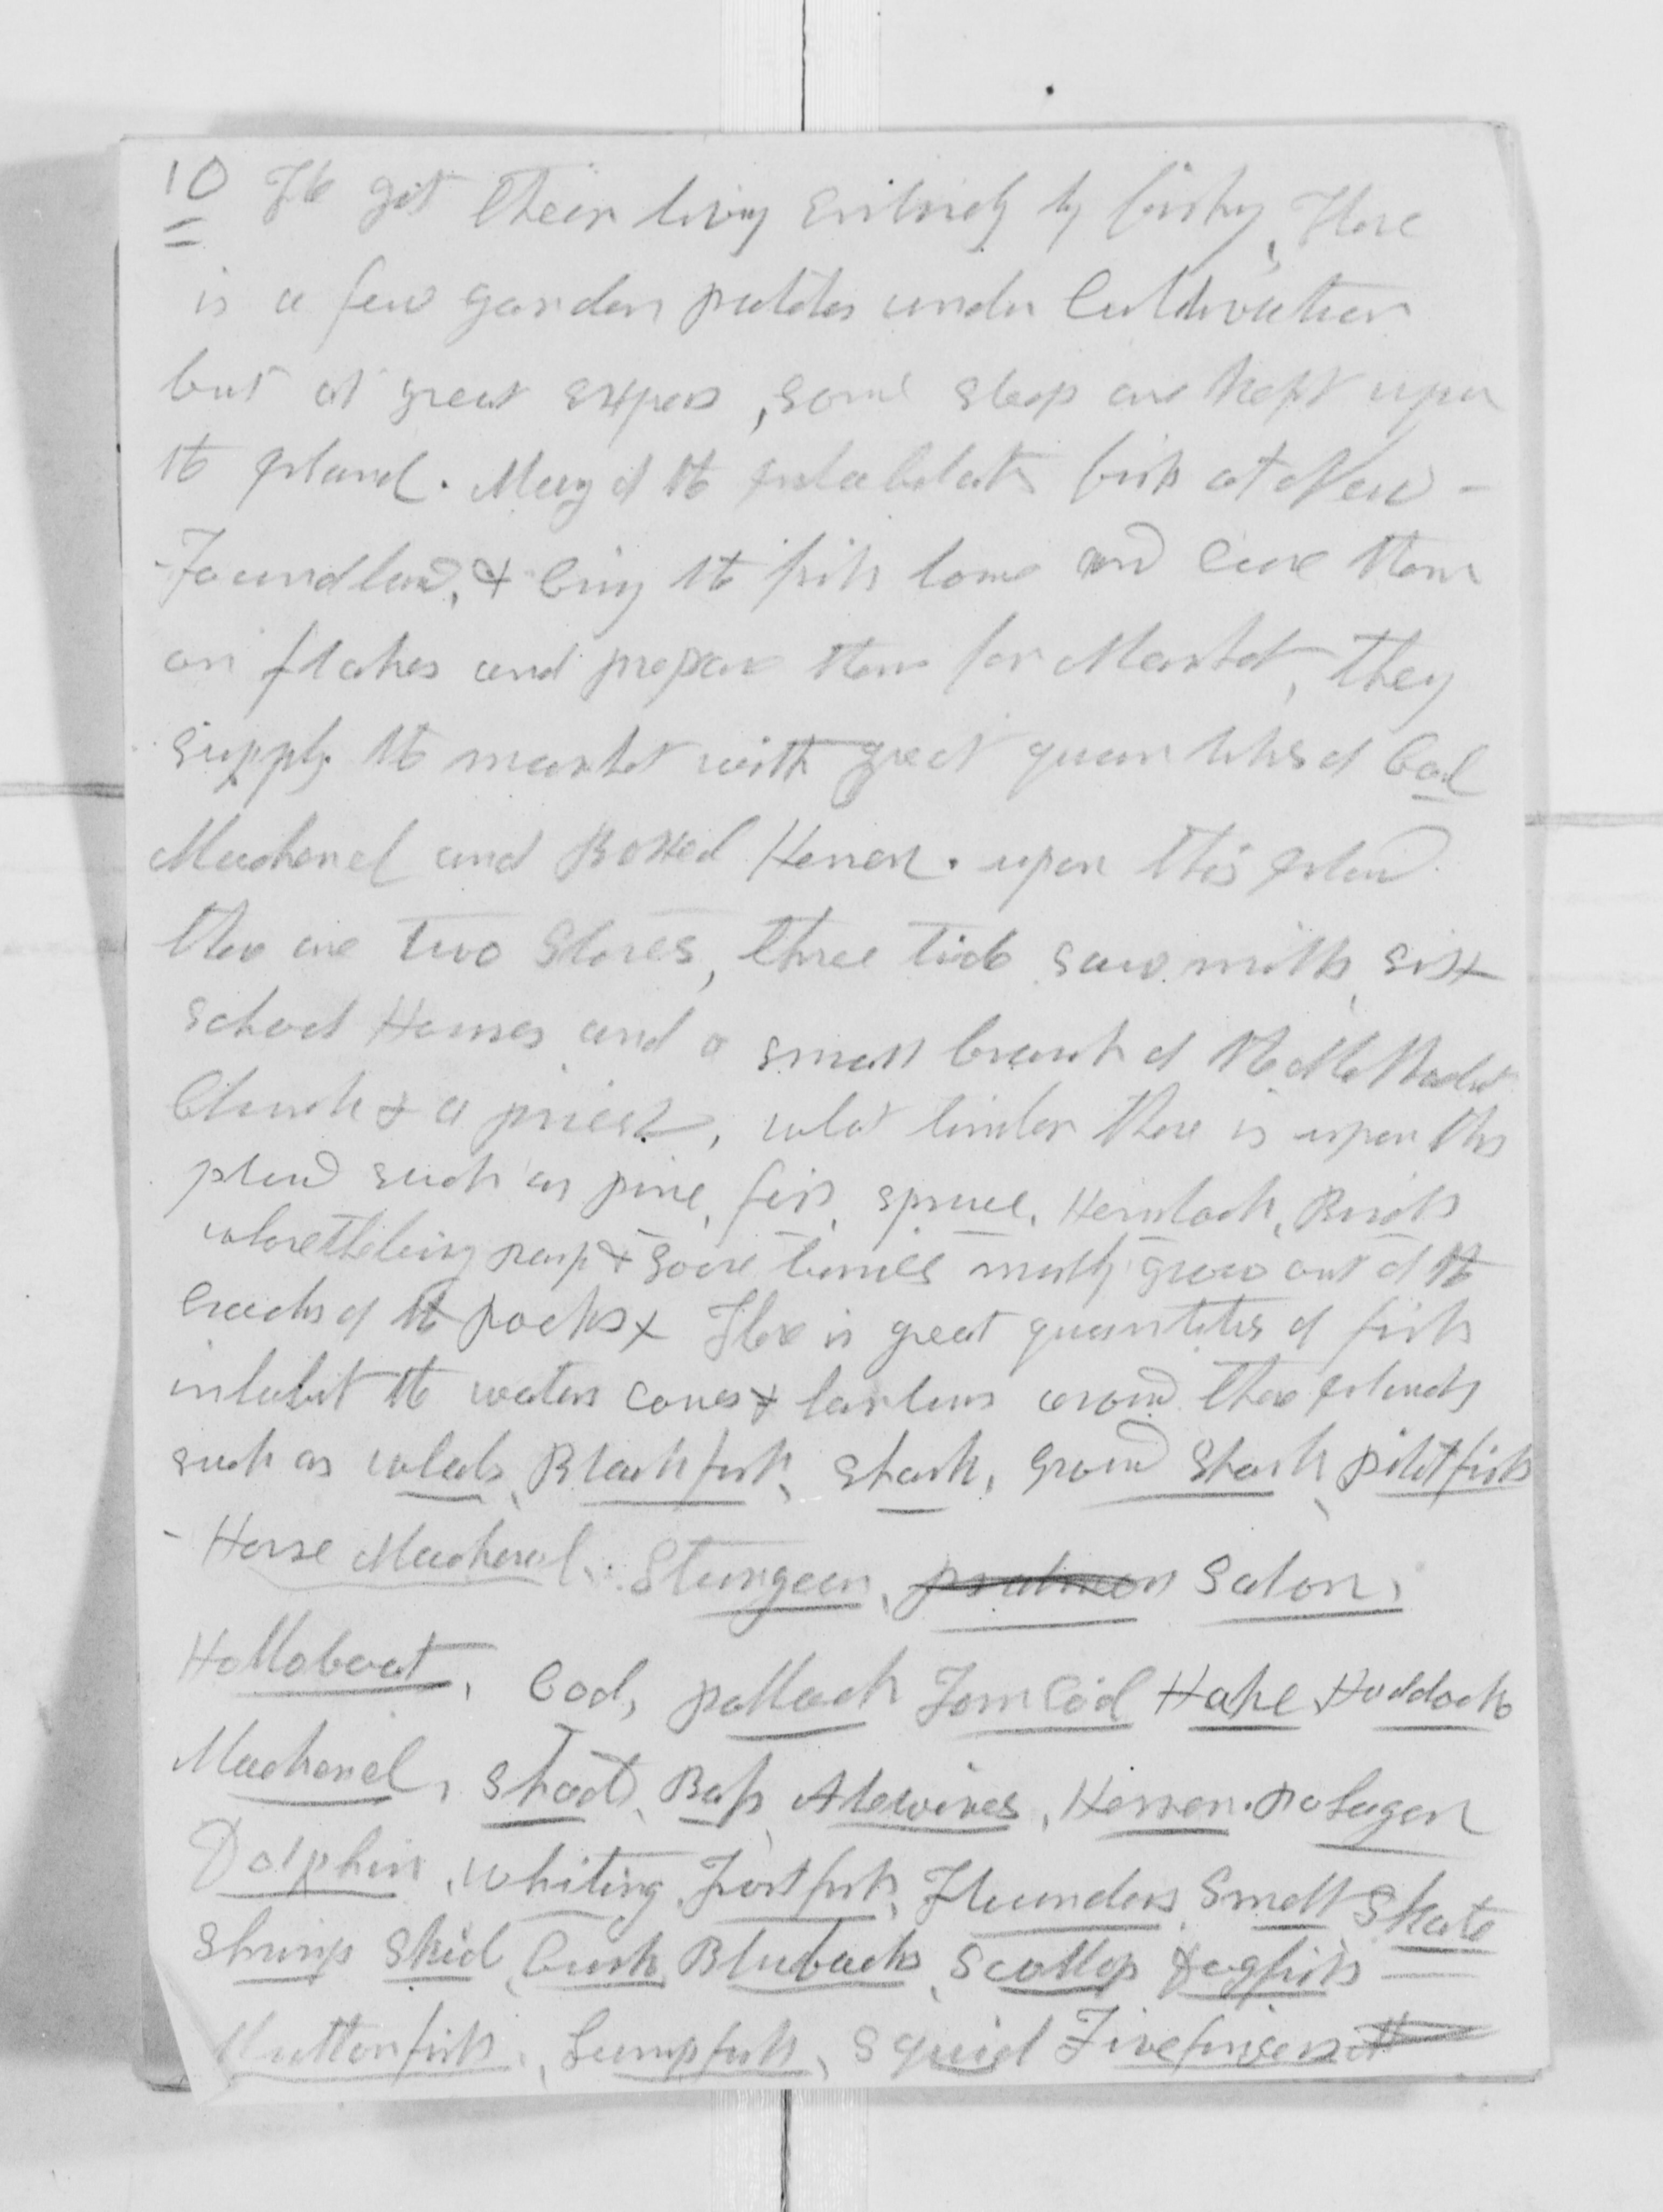 10 The git their living entirely by fishing, There
is a few garden patches under Cultivation
but at great expens, some sheep are kept upon
the Island. Many of the inhabitants fish at New-
-Foundland, & bring the fish home and cure them
on flakes and prepare them for Market, they
supply the market with great quantities of Cod
Mackerel and Boxed Herren. upon this Island
there are two Stores, three tide saw mills, six
school Houses and a small branch of the Methodist
Church & a priest, what timber there is upon this
Island such as pine, fir, spruce, Hemlock, Birch
rasp & Goose berries mostly grow out of the
cracks of the rocks & There is great quantities of fish
inhabit the waters coves & harburs around these Islands
such as whale, Blackfish, Shark, Ground Shark, pilotfish
- Horse Mackerel, Sturgeon, Salon,
Hallaboat, Cod, pollack Tom Cod Hake Haddock
Mackerel, Shad, Bass, Alewives, Herren. Pohagen
Dolphin, Whiting, Frostfish, Flounders, Smelt Skate
Shrimp Skid, Cusk, Blueback, Scollop Dogfish
Muttonfish, Lumpfish, Squid Fivefingers